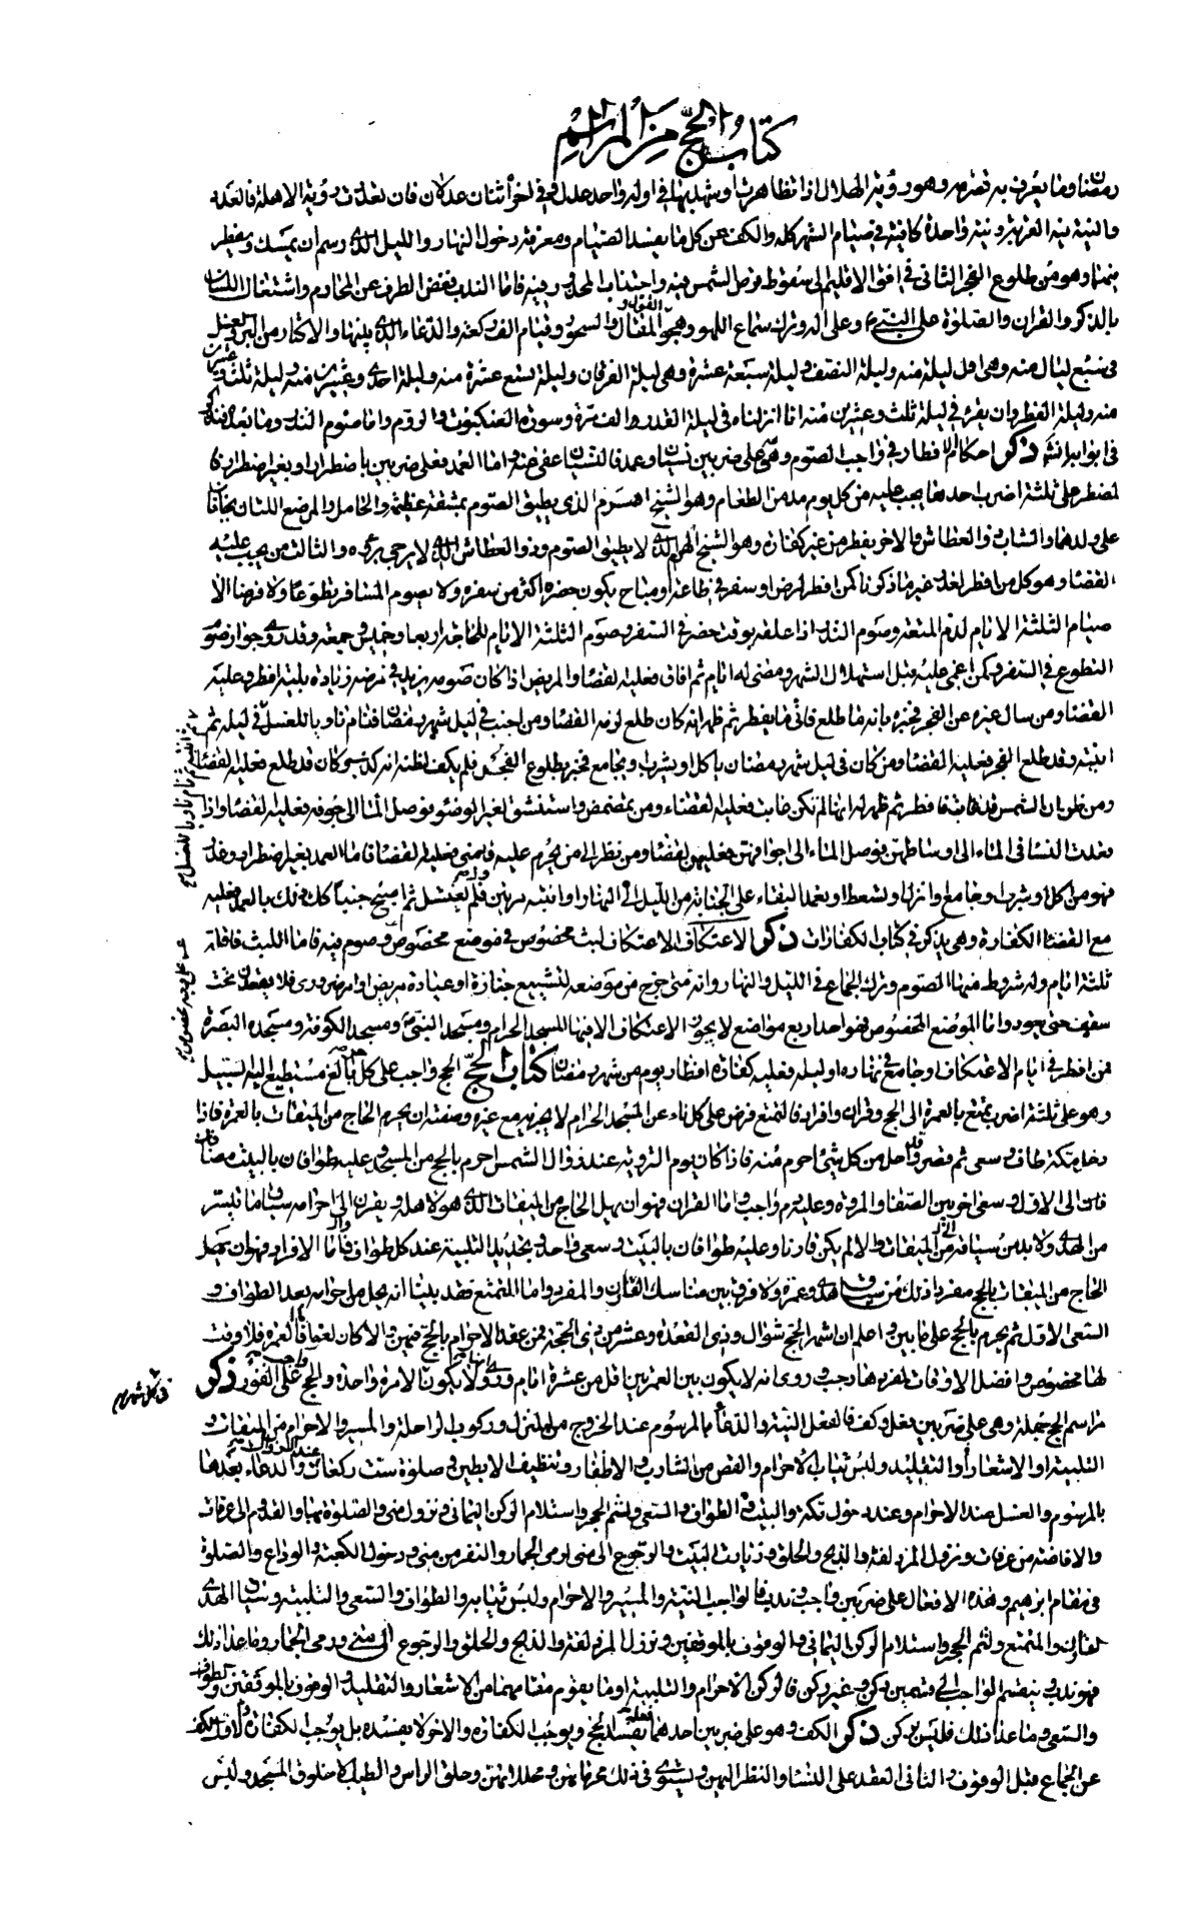 كتاب الحج من المراسم
رمضان وما يعرف به تصرمه وهو رؤية الهلال اذا تظاهرت او شهد بها في اوله واحد عدل وفي اخره اثنان عدلان فان تعذلت رؤية الاهلة فالعدد
والنية نية القربة ونية واحدة كافية في صيام الشهر كله والكف عن كل ما يفسد الصيام ومعرفة دخول النهار والليل الذى رسم ان يمسك ويفطر
فيهما وهو من طلوع الفجر الثانى في افق الاقليم الى سقوط قرص الشمس فيه واجتناب المحذور فيه فاما الندب فغض الطرف عن المحارم واشتغال اللسان
بالذكر والقران والصلوة على النبي وعلى اله وترك سماع اللهو وهجو المقال والسحور وقيام الف ركعة والدعاء الذى بينها والاكثار من البر والغسل
في سبع ليال منه وهى اول ليلة منه وليلة النصف وليلة سبعة عشرة وهى ليلة الفرقان وليلة تسع عشرة منه وليلة احدى وعشرين منه وليلة ثلث وعشرين
منه وليلة الفطر وان يقرء في ليلة ثلث وعشرين منه انا انزلناه في ليلة القدر الف مرة وسورة العنكبوت والروم واما صوم النذر وما
في ابوابه ان شاء ذكر احكام الافطار في واجب الصوم وهى على ضربين نسيان وعمد فالنسيان عفى عنه واما العمد فعلى ضربين باضطرار او بغير اضطرار فا
لمضطر على ثلثة اضرب احدها يجب عليه من كل يوم مد من الطعام وهو الشيخ الهرم الذى يطيق الصوم بمشقة عظيمة والحامل والمرضع اللتان يخافان
على ولدهما والشاب ذو العطاش والاخر يفطر من غير كفارة وهو الشيخ الهرم الذى لا يطيق الصوم وذو العطاش الذى لا يرجى برؤه والثالث من يجب عليه
القضاء وهو كل من افطر لعذر غير ما ذكرنا كمن افطر لمرض او سفر في طاعة او مباح يكون حضره اكثر من سفره ولا يصوم المسافر تطوعا ولا فرضا الا
صيام الثلثة الايام لدم المتعة وصوم النذر اذا علقه بوقت حضر في السفر وصوم الثلثة الايام للحاجة اربعا وخميس وجمعة وقد روى جواز صوم
التطوع في السفر وكمن اغمى عليه قبل استهلال الشهر ومضى له ايام ثم افاق فعليه القضاء والمريض اذا كان صومه يزيد في مرضه زيادة بينة افطر وعليه
القضاء ومن سال غيره عن الفجر فخبره بانه ما طلع فاتى ما يفطر ثم ظهر انه كان طلع لزمه القضاء ومن اجنب في ليل شهر رمضان فنام ناويا للغسل في ليله ثم
انتبه وقد طلع الفجر فعليه القضاء ومن كان في ليل شهر رمضان ياكل او يشرب او يجامع فخبر بطلوع الفجر فلم يكف لظنه انه كذب وكان قد طلع فعليه القضاء
ومن ظن ان الشمس قد غابت فافطر ثم ظهر له انها لم تكن غابت فعليه القضاء ومن تمضمض واستنشق لغير الوضوء فوصل الماء الى جوفه فعليه القضاء واذا
قعدت النساء فى الماء الى اوساطهن فوصل الماء الى اجوافهن فعليهن القضاء ومن نظر الى من يحرم عليه فامنى فعليه القضاء فاما العمد بغير اضطرار وعذر
فهو من اكل او شرب او جامع او انزل او تسعط او تعمد البقاء على الجنابة من الليل الى النهار او انتبه مرتين فلم يغتسل ثم اصبح جنبا كل ذلك بالعمد فعليه
مع القضاء الكفارة وهى يذكر في كتاب الكفارات ذكر الاعتكاف الاعتكاف لبث مخصوص في موضع مخصوص وصوم فيه فاما اللبث فاقله
ثلثة ايام وله شروط منها الصوم وترك الجماع فى الليل والنهار وانه متى خرج من موضعه لتشييع جنازة او عيادة مريض او امر ضرورى فلا يقعد تحت
سقف حتى يعود واما الموضع المخصوص فهو احد اربع مواضع لا يجوز الاعتكاف الا فيها المسجد الحرام ومسجد النبي ومسجد الكوفة ومسجد البصرة
فمن افطر فى ايام الاعتكاف او جامع في نهاره او ليله فعليه كفارة افطار يوم من شهر رمضان كتاب الحج الحج واجب على كل بالغ مستطيع اليه السبيل
وهو على ثلثة اضرب تمتع بالعمرة الى الحج وقران وافراد فالتمتع فرض على كل ناء عن المسجد الحرام لا يجزيه مع غيره وصفته ان يحرم الحاج من الميقات بالعمرة فاذا
دخل مكة طاف وسعى ثم قصر واحل من كل شئ احرم منه فاذا كان يوم التروية عند زوال الشمس احرم بالحج من المسجد وعليه طوافان بالبيت مضافان
الى الاول وسعى اخر بين الصفا والمروة وعليه دم واجب واما القران فهو ان يهل الحاج من الميقات الذى هو لاهله ويقرن الى احرامه سياق ما تيسر
من الهدى ولا بد من سياقه من الميقات والا لم يكن قارنا وعليه طوافان بالبيت وسعى واحد وتجديد التلبية عند كل طواف فاما الافراد فهو ان يهل
الحاج من الميقات بالحج مفردا ذلك من سياق هدى وعمرة ولا فرق بين مناسك القارن والمفرد واما المتمتع فقد بينا انه يحل من احرامه بعد الطواف و
السعى الاول ثم يحرم بالحج على ما بين واعلم ان اشهر الحج شوال وذى القعدة وعشر من ذى الحجة فمن عقد الاحرام بالحج فيهن والا كان لغوا فاما العمرة فلا وقت
لها مخصوص وافضل الاوقات لمفردها رجب وروى انه لا يكون بين العمرتين اقل من عشرة ايام وروى لا يكون الا مرة واحدة والحج على الفور ذكر
مراسم الحج جملة وهى على ضربين فعل وكف فالفعل النية والدعاء المرسوم عند الخروج من المنزل وركوب الراحلة والمسير والاحرام من الميقات و
التلبية او الاشعار او التقليد ولبس ثياب الاحرام والقص من الشارب والاظفار وتنظيف الابطين في صلوة ست ركعات والدعاء بعدها
بالمرسوم والغسل عند الاحرام وعند دخول مكة والبيت والطواف والسعى ولثم الحجر واستلام الركن اليمانى ونزول منى والصلوة بها والغدو الى عرفات
والافاضة من عرفات ونزول المزدلفة والذبح والحلق وزيارت البيت والرجوع الى منى لرمى الجمار والنفر من منى ودخول الكعبة والوداع والصلوة
فى مقام ابرهيم وهذه الافعال على ضربين واجب وندب فالواجب النية والمسير والاحرام ولبس ثيابه والطواف والسعى والتلبية وسياق الهدى
للقارن والمتمتع ولثم الحجر واستلام الركن اليمانى والوقوف بالموقفين ونزول المزدلفة والذبح والحلق والرجوع الى منى ورمى الجمار وما عدا ذلك
فهو ندب وينقسم الواجب الى قسمين ركن وغير ركن فالركن الاحرام والتلبية او ما يقوم مقامهما من الاشعار والتقليد والوقوف بالموقفين والطواف
والسعى وما عدا ذلك فليس بركن ذكر الكف وهو على ضربين احدهما يفسد الحج ويوجب الكفارة والاخر لا يفسده بل يوجب الكفارة فالاول الكف
عن الجماع قبل الوقوف والثانى العقد على النساء والنظر اليهن ويستوى في ذلك محرماتهن ومحللاتهن وحلق الراس والطيب الا خلوق المسجد ولبس